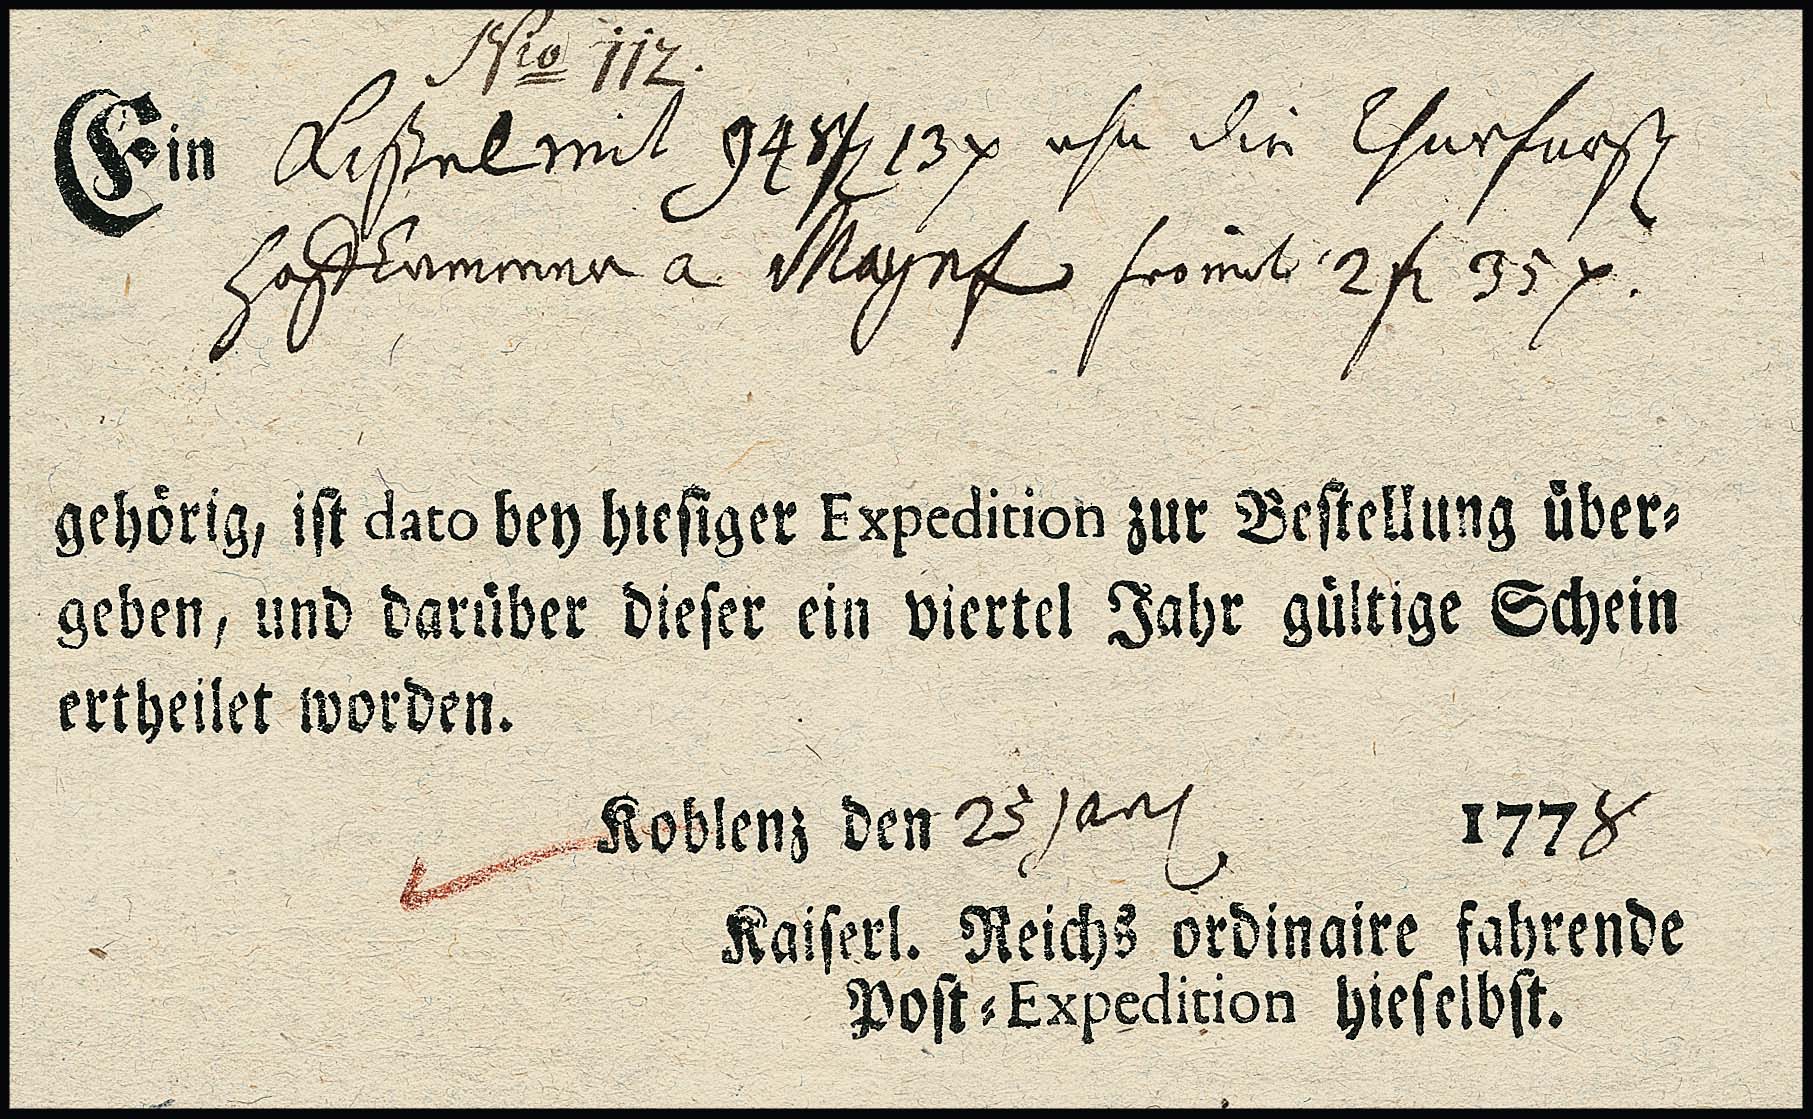 Nro 112.
Ein Kistel mit 948 fl 13 x ahn die Churfürstl
Hoffcammer a Maynz franco mit 2 fl 35 x.
gehörig, ist dato bey hiesiger Expedition zur Bestellung über-
geben, und darüber dieser ein viertel Jahr gültige Schein
ertheilet worden.
Koblenz den 23 Jan 1778
Kaiserl. Reichs ordinaire fahrende
Post-Expedition hieselbst.